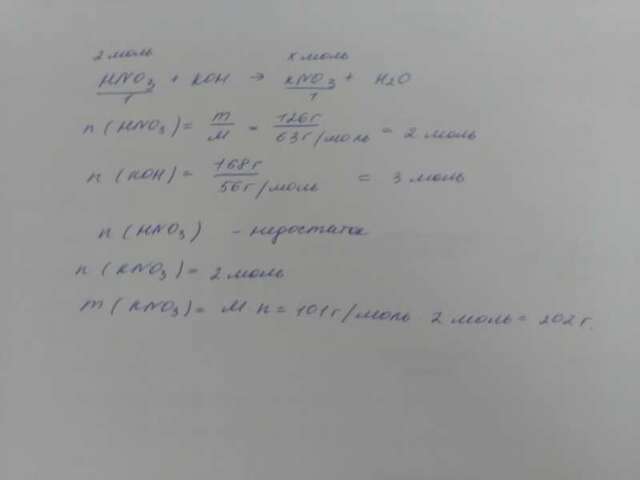 2 моль х моль
HNO3 + KOH → KNO3 + H2O
1 1
n (HNO3) = m/M = 126г/63г/моль = 2 моль
n (KOH) = 168г/56г/моль = 3 моль
n (HNO3) - недостаток
n (KNO3) = 2 моль
m (KNO3) = M n = 101г/моль 2 моль = 202г.